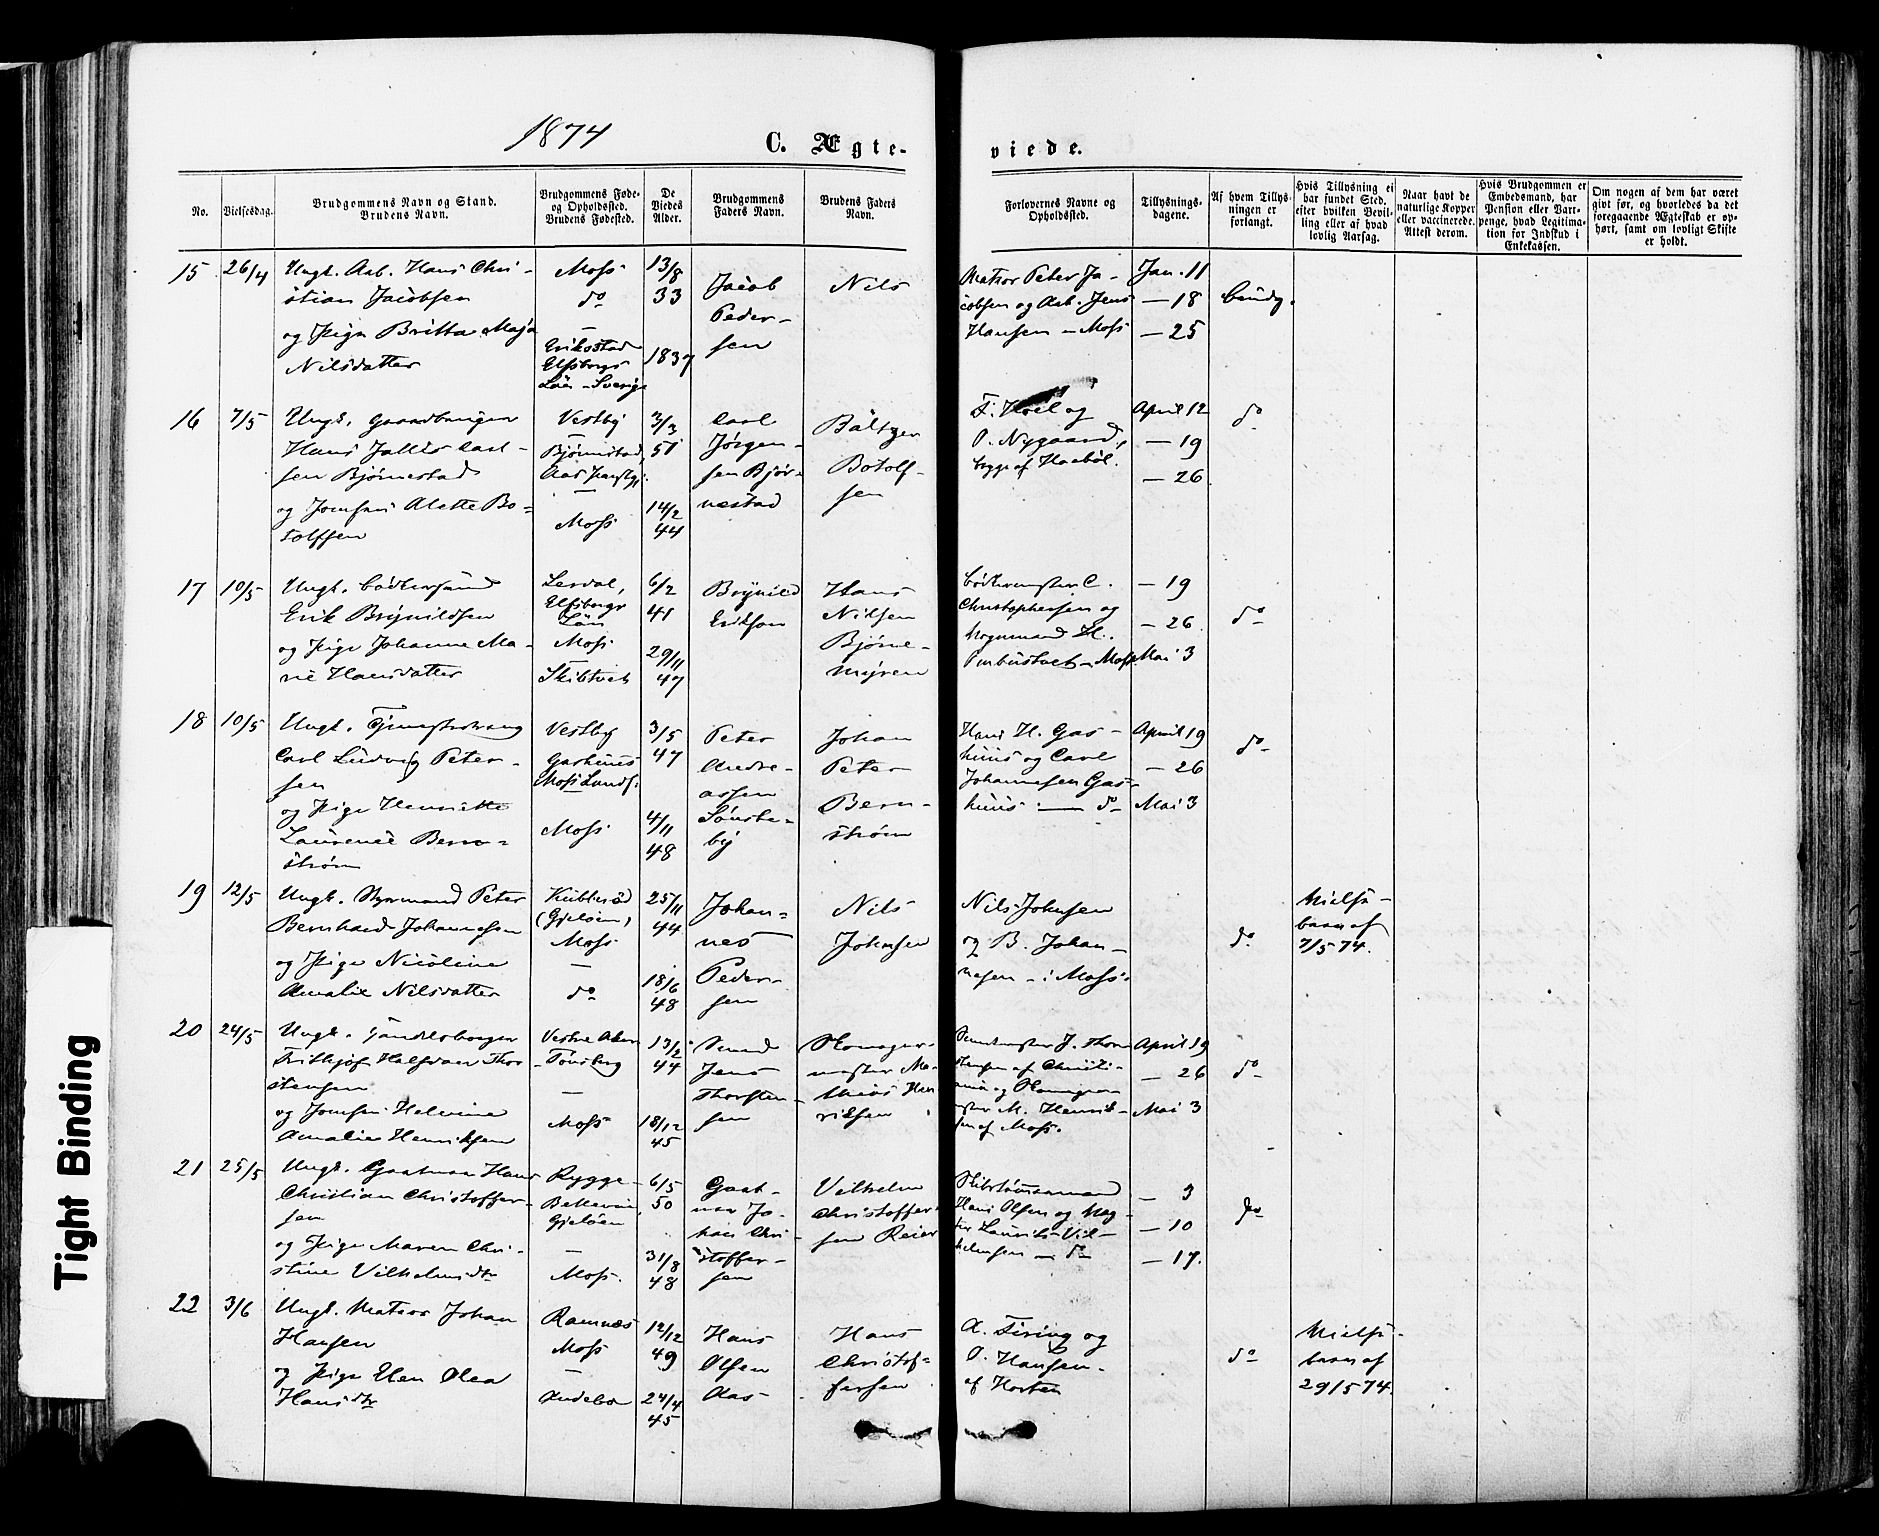 1874
C. Ægte-
viede.
No.
Vielsesdag.
Brudgommens Navn og Stand.
Brudens Navn.
Brudgommens Føde-
og Opholdssted.
Brudens Fødested.
De
Viedes
Alder.
Brudgommens
Faders Navn.
Brudens Faders
Navn.
Forlovernes Navne og
Opholdssted.
Tillysnings-
dagene.
Af hvem Tillys-
ningen er
forlangt.
Hvis Tillysning ei
har fundet Sted,
efter hvilken Bevil-
ling eller af hvad
lovlig Aarsag.
Naar havt de
naturlige Kopper
eller vaccinerede.
Attest derom.
Hvis Brudgommen er
Embedsmand, har
Pension eller Vart-
penge, hvad Legitima-
tion for Indskud i
Enkekassen.
Om nogen af dem har været
givt før, og hvorledes da det
foregaaende Ægteskab er op-
hørt, samt om lovligt Skifte
er holdt.
15
26/4
Ungk. Arb. Hans Chri-
stian Jacobsen
og Pige Britta Maja
Nilsdatter
Moss
do
—
Erikstad
Elfsborgs
Län - Sverige
13/8
33
1837
Jacob
Peder-
sen
Nils
Matros Peter Ja-
cobsen og Arb. Jens
Hansen - Moss
Jan. 11
— 18
— 25
Brudg.
16
7/5
Ungk. Gaardbruger
Hans Carl-
sen Bjørnestad
og Jomfru Alette Bo-
tolfsen
Vestby
—
Bjørnestad,
Aas Præstgj.
—
Moss
3/3
51
14/2
44
Carl
Jørgen-
sen Bjør-
nestad
Baltzer
Botolf-
sen
og
O. Nygaard,
begge af Haabøl.
April 12
— 19
— 26
do
17
10/5
Ungk. Bødkersvend
Erik Brynildsen
og Pige Johanne Ma-
rie Hansdatter
Lerdal,
Elfsborgs
Län
Moss
—
Skibtvet
6/2
41
29/11
47
Brynild
Erikson
Hans
Nilsen
Bjørne-
myren
Bødkermester C.
Christophersen og
H.
- Moss
— 19
— 26
Mai 3
do
18
10/5
Ungk. Tjenestedreng
Carl Ludvig Peter-
sen
og Pige Henriette
Laurense Bern-
strøm
Vestby
Gashuus
Moss Lands.
—
Moss
3/5
47
4/11
48
Peter
Andre-
assen
Sønste-
by
Johan
Peter
Bern-
strøm
Hans H. Gas-
huus og Carl
Johannesen Gas-
huus — do
April 19
— 26
Mai 3
do
19
12/5
Ungk. Styrmand Peter
Bernhard Johannesen
og Pige Nicoline
Amalie Nilsdatter
Kubberød
(Gjeløen)
Moss
—
do
25/11
44
18/6
48
Johan-
nes
Peder-
sen
Nils
Johnsen
Nils Johnsen
og B. Johan-
nesen - i Moss
do
Vielses-
brev af
7/5 74.
20
24/5
Ungk. Handelsborger
Frithjof Halfdan Thor-
stensen
og Jomfru Helvine
Amalie Henriksen
Vestre Aker
- Tønsberg
—
Moss
13/2
44
18/12
45
Jens
Thorsten-
sen
ma-
thias Hen-
riksen
J. Thor-
stensen af Christi-
ania og
M. Henrik-
sen af Moss.
April 19
— 26
Mai 3
do
21
25/5
Ungk. Gaatmar Hans
Christian Christoffer-
sen
og Pige Maren Chri-
stine Vilhelmsdtr
Rygge -
Bellevue,
Gjeløen
—
Moss.
6/5
50
31/8
48
Gaat-
mar Jo-
han Chri-
stoffer-
sen
Vilhelm
Christoffer-
sen Reier
Hans Olsen og Mag-
Laurits Vil-
helmsen — do
— 3
— 10
— 17.
do
22
3/6
Ungk. Matros Johan
Hansen
og Pige Elen Olea
Hansdtr
Ramnæs
Moss
—
Andebo
12/12
49
24/4
45
Hans
Olsen
Aas
Hans
Christof-
fersen
A. Firing og
O. Hansen -
af Horten
do
Vielses-
brev af
29/5 74.
Tight Binding